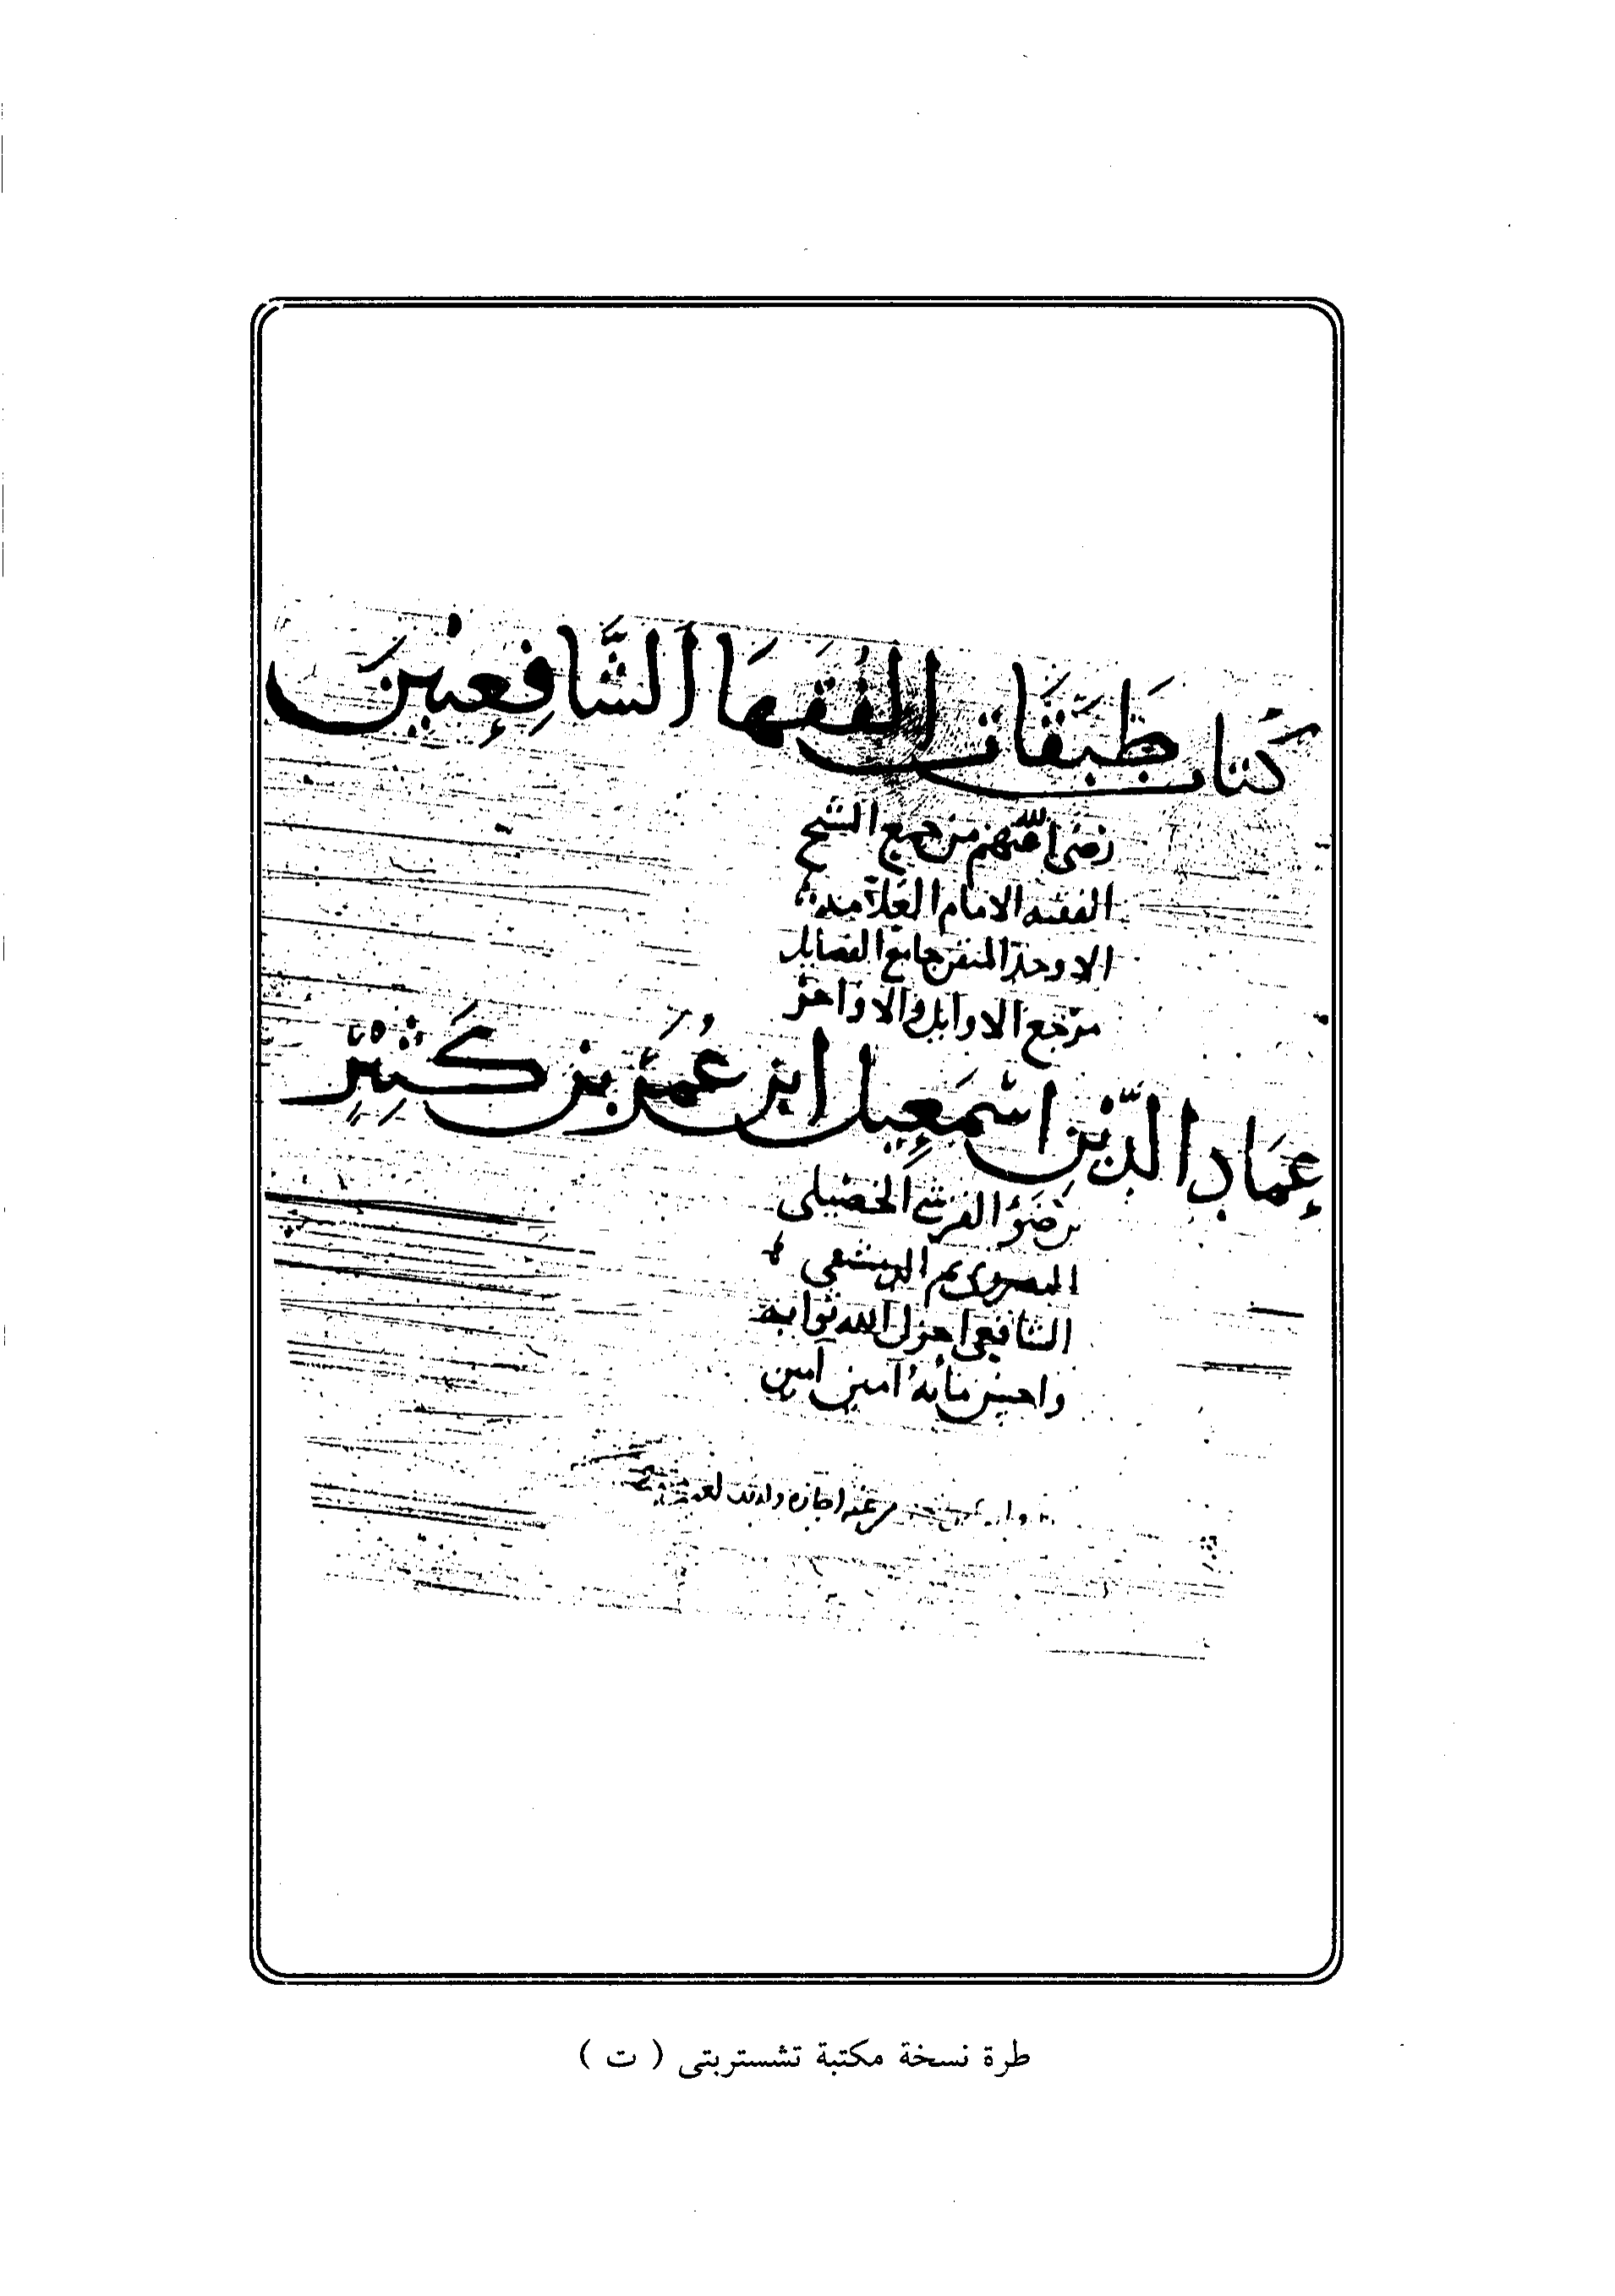 كتاب طَبَقَات الفُقَهَا الشَّافِعِيْنَ
رضى الله عنهم من جمع الشيخ
الفقيه الامام العلامة
الاوحد المتقن جامع الفضايل
مرجع الاوايل والاواخر
عِمَاد الدِّين اسْمَعِيل ابن عُمَر بن كَثِيْرٍ
بن ضَوْ القرشي الحضيلى
البصروي ثم الدمشقي
الشافعي اجزل الله ثوابه
واحسن مآبه آمين آمين
عنه اجازة
طرة نسخة مكتبة تشستربتى ( ت )